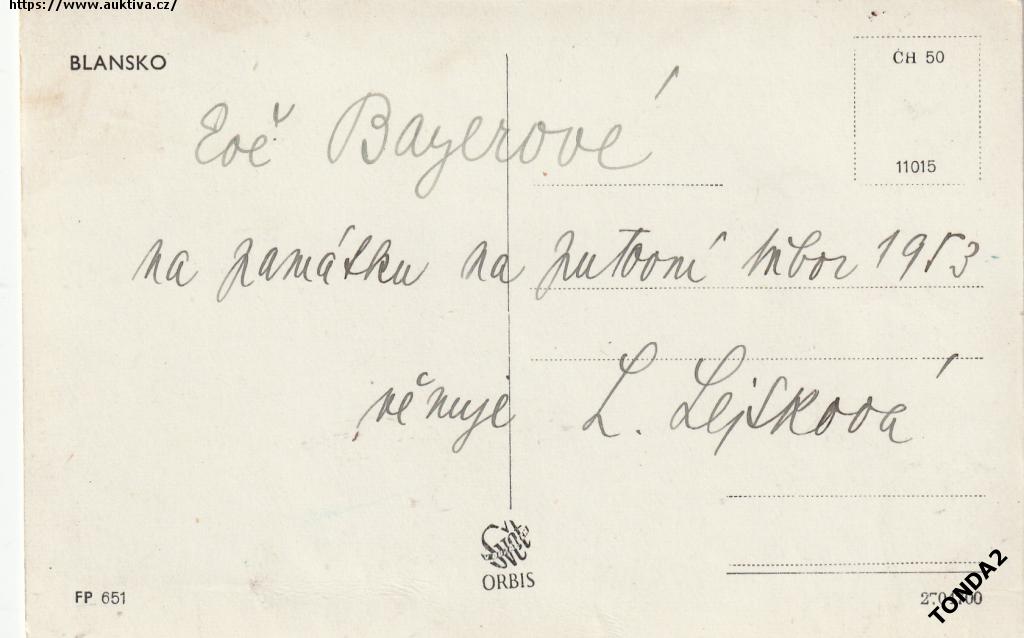 https://www.auktiva.cz/
BLANSKO
ČH 50
11015
Zoě Bayerové
na památku na putovní tábor 1953
věnuje L. Lejsková
ORBIS
FP 651
TONDA2